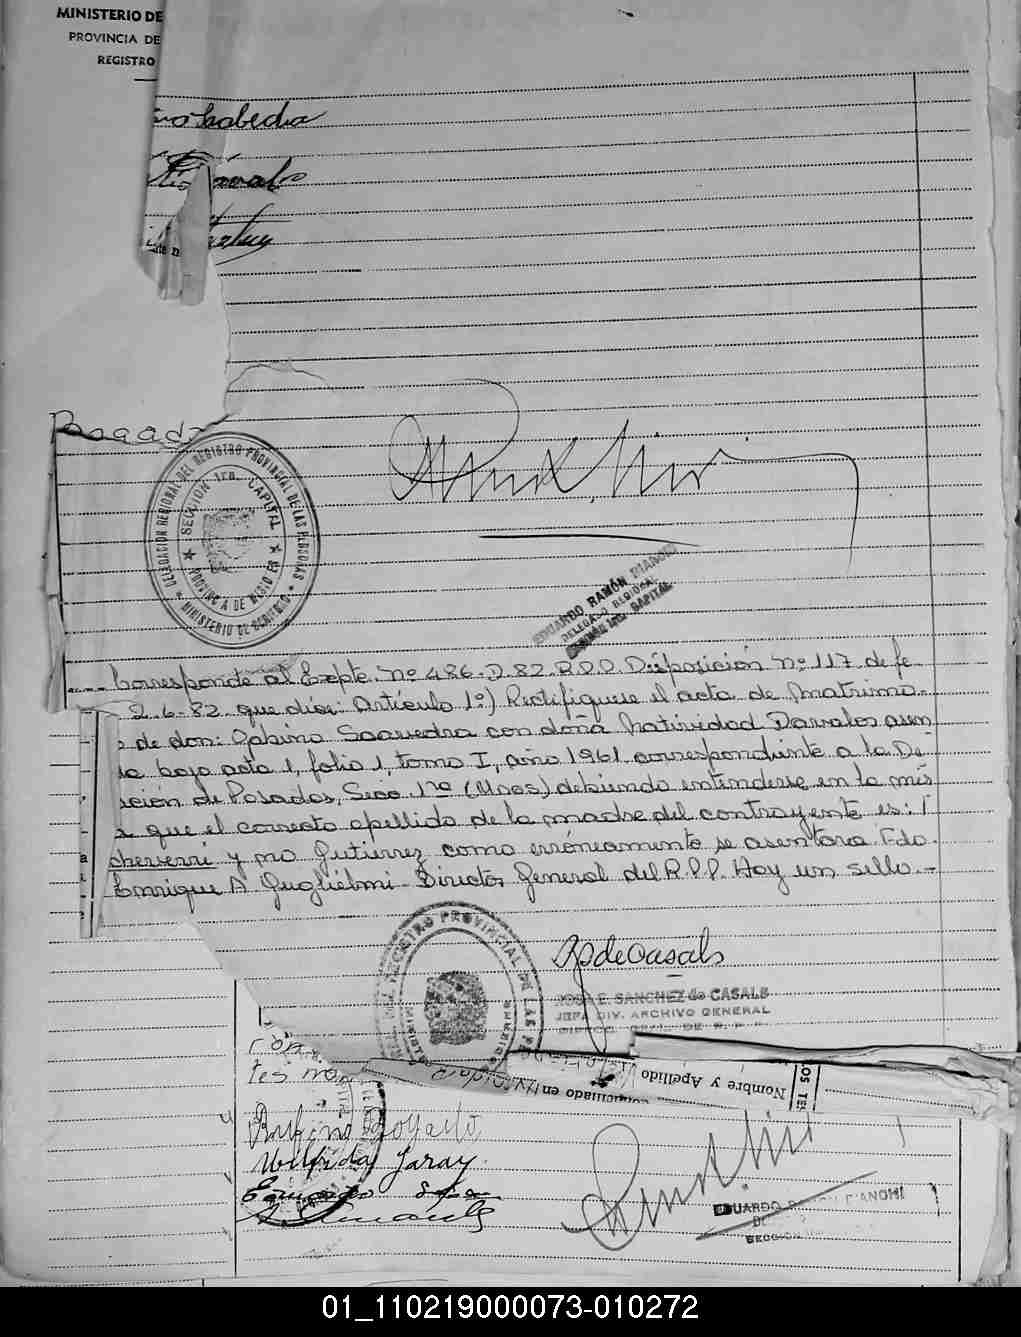 MINISTERIO DE
PROVINCIA DE
REGISTRO
Posadas
DELEGACION REGIONAL DEL REGISTRO PROVINCIAL DE LAS PERSONAS
SECCION 1ra. CAPITAL
PROVINCIA DE MISIONES
MINISTERIO DE GOBIERNO
EDUARDO RAMÓN DIANGHI
DELEGADO REGIONAL
SECCION 1ra. CAPITAL
Corresponde al Expte. Nº 486-D-82-R.P.P. Disposición Nº 117 de fe
2-6-82 que dice: Artículo 1º) Rectifíquese el acta de matrimo-
de don: Gabino Saavedra con doña Natividad Davalos asen
bajo acta 1, folio 1, tomo I, año 1961 correspondiente a la De-
ción de Posadas, Secc. 1ra (Mnes) debiendo entenderse en la mis
que el correcto apellido de la madre del contrayente es: E
cheverri y no Gutierrez como erróneamente se asentara. Fdo.
Enrique A Guglielmi - Director General del R.P.P. Hay un sello.-
REGISTRO PROVINCIAL DE LAS PE
R de Casals
ROSA E. SANCHEZ de CASALS
JEFA DIV. ARCHIVO GENERAL
DIREC. GRAL. DE R. P. P.
Nombre y Apellido
Domiciliado en
LOS TES
ron
tes no
Rufino Gogarto
Wilfrida Garay
EDUARDO RAMON DIANGHI
SECCION
01_110219000073-010272